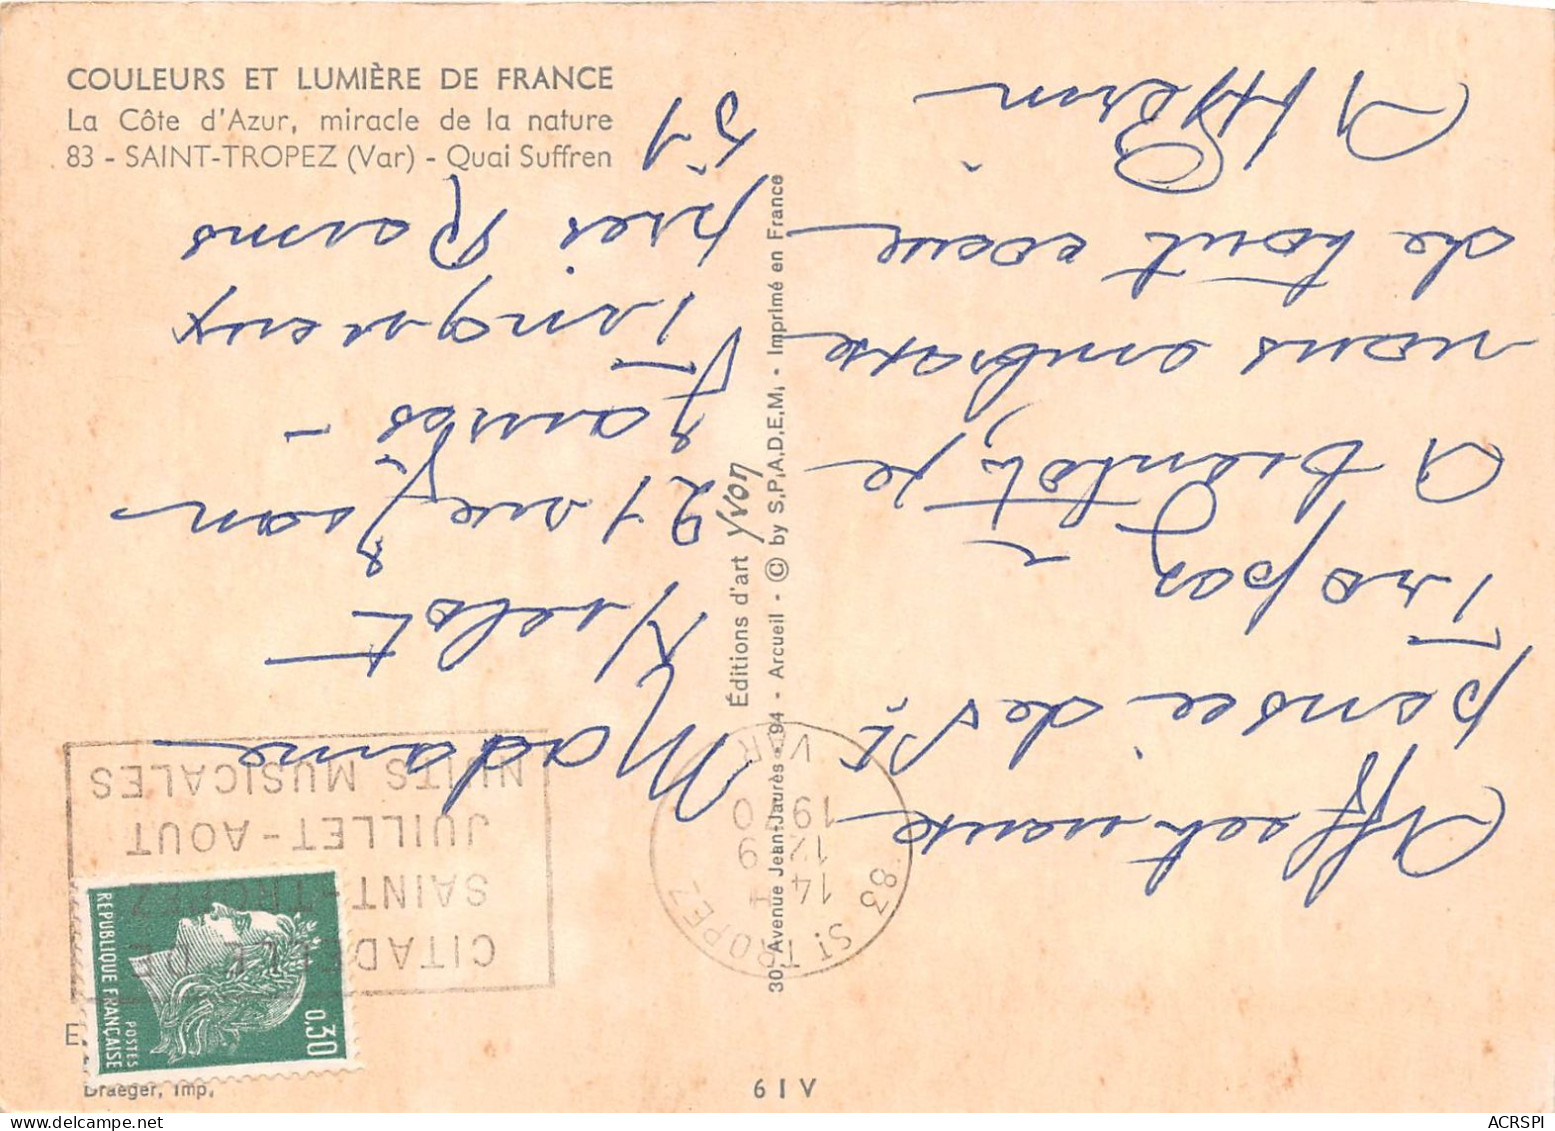 COULEURS ET LUMIÈRE DE FRANCE
La Côte d'Azur, miracle de la nature
83 - SAINT-TROPEZ (Var) - Quai Suffren
Affectueuse
pensée de St
Tropez
A bientôt, je
vous embrasse
de tout coeur
Madame
21 rue Jean
Jaurès -
Tinqueux
près Reims
51
Éditions d'art Yvon
30, Avenue Jean-Jaurès - 94 - Arcueil - © by S.P.A.D.E.M. - Imprimé en France
83 ST TROPEZ
14 H
12-9
19 0
VAR
CITADELLE DE
SAINT-TROPEZ
JUILLET-AOUT
NUITS MUSICALES
REPUBLIQUE FRANÇAISE
POSTES
0,30
Draeger, Imp.
6 I V
ACRSPI